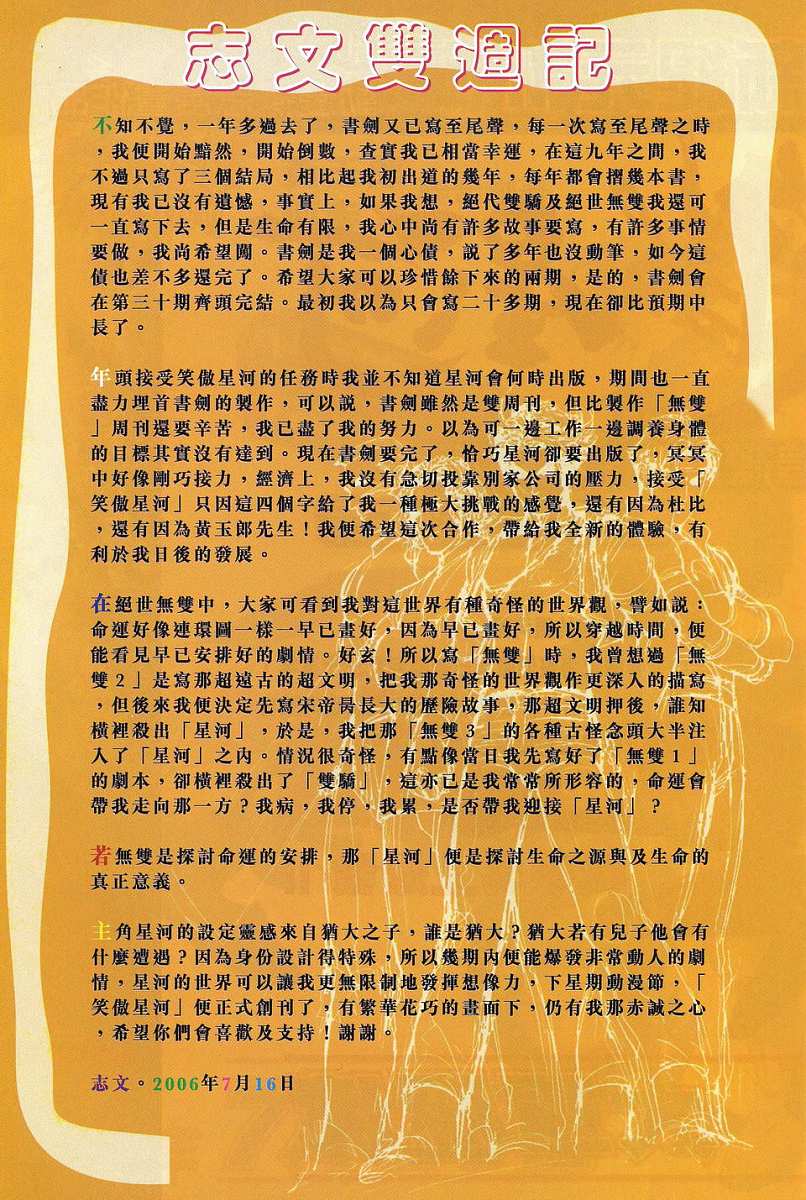 志文雙週記
不知不覺，一年多過去了，書劍又已寫至尾聲，每一次寫至尾聲之時
，我便開始黯然，開始倒數，查實我已相當幸運，在這九年之間，我
不過只寫了三個結局，相比起我初出道的幾年，每年都會摺幾本書，
現有我已沒有遺憾，事實上，如果我想，絕代雙驕及絕世無雙我還可
一直寫下去，但是生命有限，我心中尚有許多故事要寫，有許多事情
要做，我尚希望闖。書劍是我一個心債，説了多年也沒動筆，如今這
債也差不多還完了。希望大家可以珍惜餘下來的兩期，是的，書劍會
在第三十期齊頭完結。最初我以為只會寫二十多期，現在卻比預期中
長了。
年頭接受笑傲星河的任務時我並不知道星河會何時出版，期間也一直
盡力埋首書劍的製作，可以説，書劍雖然是雙周刊，但比製作「無雙
」周刊還要辛苦，我已盡了我的努力。以為可一邊工作一邊調養身體
的目標其實沒有達到。現在書劍要完了，恰巧星河卻要出版了，冥冥
中好像剛巧接力，經濟上，我沒有急切投靠別家公司的壓力，接受「
笑傲星河」只因這四個字給了我一種極大挑戰的感覺，還有因為杜比
，還有因為黃玉郎先生！我便希望這次合作，帶給我全新的體驗，有
利於我日後的發展。
在絕世無雙中，大家可看到我對這世界有種奇怪的世界觀，譬如説：
命運好像連環圖一樣一早已畫好，因為早已畫好，所以穿越時間，便
能看見早已安排好的劇情。好玄！所以寫「無雙」時，我曾想過「無
雙2」是寫那超遠古的超文明，把我那奇怪的世界觀作更深入的描寫
，但後來我便決定先寫宋帝昺長大的歷險故事，那超文明押後，誰知
橫裡殺出「星河」，於是，我把那「無雙3」的各種古怪念頭大半注
入了「星河」之內。情況很奇怪，有點像當日我先寫好了「無雙1」
的劇本，卻橫裡殺出了「雙驕」，這亦已是我常常所形容的，命運會
帶我走向那一方？我病，我停，我累，是否帶我迎接「星河」？
若無雙是探討命運的安排，那「星河」便是探討生命之源與及生命的
真正意義。
主角星河的設定靈感來自猶大之子，誰是猶大？猶大若有兒子他會有
什麼遭遇？因為身份設計得特殊，所以幾期內便能爆發非常動人的劇
情，星河的世界可以讓我更無限制地發揮想像力，下星期動漫節，「
笑傲星河」便正式創刊了，有繁華花巧的畫面下，仍有我那赤誠之心
，希望你們會喜歡及支持！謝謝。
志文。2006年7月16日